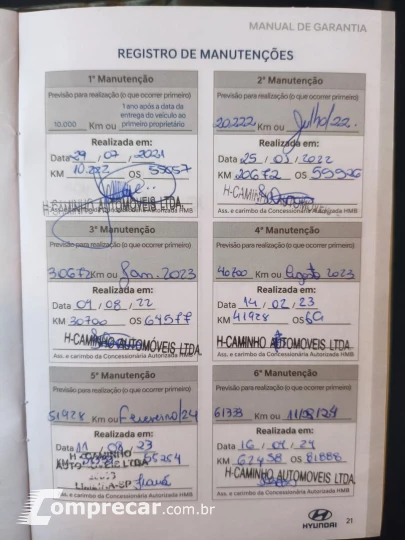 MANUAL DE GARANTIA
REGISTRO DE MANUTENÇÕES
1ª Manutenção
Previsão para realização (o que ocorrer primeiro)
10.000 Km ou 1 ano após a data da entrega do veículo ao primeiro proprietário
Realizada em:
Data 29 / 07 / 2021
KM 10.222 OS
H-CAMINHO AUTOMOVEIS LTDA.
Ass. e carimbo da Concessionária Autorizada HMB
2ª Manutenção
Previsão para realização (o que ocorrer primeiro)
20.222 Km ou Julho/22.
Realizada em:
Data 25 / 01 / 2022
KM 20672 OS
H-CAMINHO AUTOMOVEIS
Ass. e carimbo da Concessionária Autorizada HMB
3ª Manutenção
Previsão para realização (o que ocorrer primeiro)
30672 Km ou Jan. 2023
Realizada em:
Data 09 / 08 / 22
KM 30700 OS 64577
H-CAMINHO AUTOMÓVEIS LTDA.
Ass. e carimbo da Concessionária Autorizada HMB
4ª Manutenção
Previsão para realização (o que ocorrer primeiro)
40700 Km ou Agosto 2023
Realizada em:
Data 14 / 02 / 23
KM 41928 OS
H-CAMINHO AUTOMÓVEIS LTDA.
Ass. e carimbo da Concessionária Autorizada HMB
5ª Manutenção
Previsão para realização (o que ocorrer primeiro)
51928 Km ou Fevereiro/24
Realizada em:
Data 11 / 08 / 23
KM OS
H-CAMINHO
AUTOMOVEIS LTDA
-SP
Ass. e carimbo da Concessionária Autorizada HMB
6ª Manutenção
Previsão para realização (o que ocorrer primeiro)
61333 Km ou 11/08/24
Realizada em:
Data 16 / 04 / 24
KM 62458 OS 81888
H-CAMINHO AUTOMOVEIS LTDA.
Ass. e carimbo da Concessionária Autorizada HMB
Comprecar.com.br
HYUNDAI
21